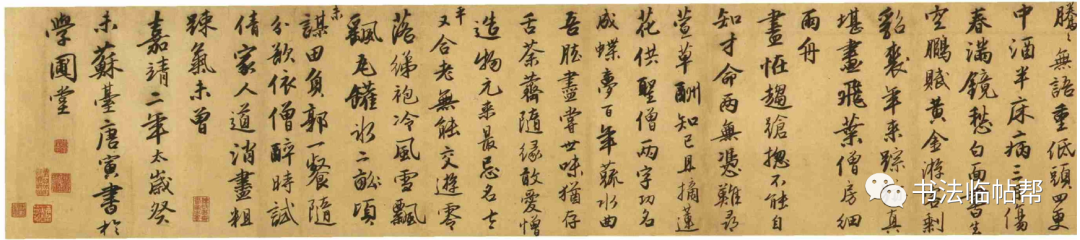 騰々無語重低頭四更
中酒半床病三月傷
春滿鏡愁白面書生
空鵬賦黃金游客剩
貂裘年来踪跡真
堪畫飛葉僧房細
雨舟
畫恠趦蹌揔不能自
知才命兩無憑難尋
萱草酬知己且摘蓮
花供聖僧兩字功名
成蝶夢百年蔬水曲
吾肱盡嘗世味猶存
舌荼薺隨緣敢愛憎
造物元来最忌名士
平又合老無能交遊零
落綈袍冷風雪飄
飄瓦罐氷二畝頃
未謀田負郭一餐隨
分欲依僧醉時試
倩家人道消盡粗
踈氣未曾
嘉靖二年太歲癸
未蘇臺唐寅書於
學圃堂
书法临帖帮